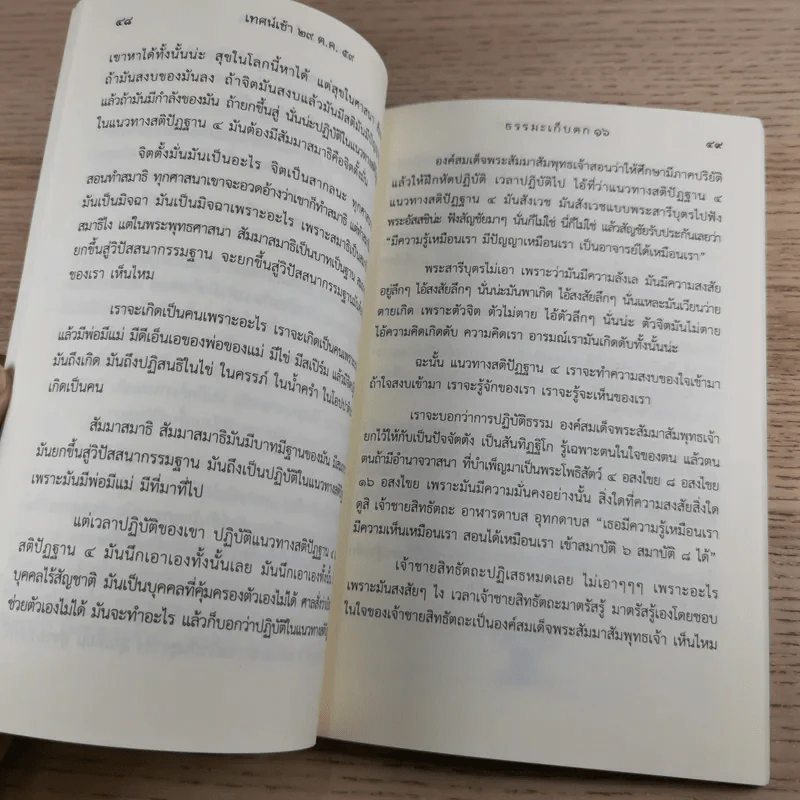 ๔๘
เทศน์เช้า ๒๙ ต.ค. ๕๙
เขาหาได้ทั้งนั้นน่ะ สุขในโลกนี้หาได้ แต่สุขในศาสนา
ถ้ามันสงบของมันลง ถ้าจิตมันสงบแล้วมันมีสติมันมีปัญญา
แล้วถ้ามันมีกำลังของมัน ถ้ายกขึ้นสู่ นั่นน่ะปฏิบัติในแนวทาง
ในแนวทางสติปัฏฐาน ๔ มันต้องมีสัมมาสมาธิคือจิตตั้งมั่น
จิตตั้งมั่นมันเป็นอะไร จิตเป็นสากลนะ ทุกศาสนา
สอนทำสมาธิ ทุกศาสนาเขาจะอวดอ้างว่าเขาก็ทำสมาธิ
มันเป็นมิจฉา มันเป็นมิจฉาเพราะอะไร เพราะสมาธิเป็น
สมาธิไง แต่ในพระพุทธศาสนา สัมมาสมาธิเป็นบาทเป็นฐาน
ยกขึ้นสู่วิปัสสนากรรมฐาน จะยกขึ้นสู่วิปัสสนากรรมฐาน
ของเรา เห็นไหม
เราจะเกิดเป็นคนเพราะอะไร เราจะเกิดเป็นคนเพราะ
แล้วมีพ่อมีแม่ มีดีเอ็นเอของพ่อของแม่ มีไข่ มีสเปิร์ม แล้วมีจิต
มันถึงเกิด มันถึงปฏิสนธิในไข่ ในครรภ์ ในน้ำคร่ำ
เกิดเป็นคน
สัมมาสมาธิ สัมมาสมาธิมันมีบาทมีฐานของมัน
มันยกขึ้นสู่วิปัสสนากรรมฐาน มันถึงเป็นปฏิบัติในแนวทาง
เพราะมันมีพ่อมีแม่ มีที่มาที่ไป
แต่เวลาปฏิบัติของเขา ปฏิบัติแนวทางสติปัฏฐาน ๔
สติปัฏฐาน ๔ มันนึกเอาเองทั้งนั้นเลย มันนึกเอาเองทั้งนั้น
บุคคลไร้สัญชาติ มันเป็นบุคคลที่คุ้มครองตัวเองไม่ได้
ช่วยตัวเองไม่ได้ มันจะทำอะไร แล้วก็บอกว่าปฏิบัติในแนวทางสติ
ธรรมะเก็บตก ๑๖
๔๙
องค์สมเด็จพระสัมมาสัมพุทธเจ้าสอนว่าให้ศึกษามีภาคปริยัติ
แล้วให้ฝึกหัดปฏิบัติ เวลาปฏิบัติไป ไอ้ที่ว่าแนวทางสติปัฏฐาน ๔
แนวทางสติปัฏฐาน ๔ มันสังเวช มันสังเวชแบบพระสารีบุตรไปฟัง
พระอัสสชิน่ะ ฟังสัญชัยมาๆ นั่นก็ไม่ใช่ นี่ก็ไม่ใช่ แล้วสัญชัยรับประกันเลยว่า
“มีความรู้เหมือนเรา มีปัญญาเหมือนเรา เป็นอาจารย์ได้เหมือนเรา”
พระสารีบุตรไม่เอา เพราะว่ามันมีความลังเล มันมีความสงสัย
อยู่ลึกๆ ไอ้สงสัยลึกๆ นั่นน่ะมันพาเกิด ไอ้สงสัยลึกๆ นั่นแหละมันเวียนว่าย
ตายเกิด เพราะตัวจิต ตัวไม่ตาย ไอ้ตัวลึกๆ นั่นน่ะ ตัวจิตมันไม่ตาย
ไอ้ความคิดเกิดดับ ความคิดเรา อารมณ์เรามันเกิดดับทั้งนั้นน่ะ
ฉะนั้น แนวทางสติปัฏฐาน ๔ เราจะทำความสงบของใจเข้ามา
ถ้าใจสงบเข้ามา เราจะรู้จักของเรา เราจะรู้จะเห็นของเรา
เราจะบอกว่าการปฏิบัติธรรม องค์สมเด็จพระสัมมาสัมพุทธเจ้า
ยกไว้ให้กับเป็นปัจจัตตัง เป็นสันทิฏฐิโก รู้เฉพาะตนในใจของตน แล้วตน
ตนถ้ามีอำนาจวาสนา ที่บำเพ็ญมาเป็นพระโพธิสัตว์ ๔ อสงไขย ๘ อสงไขย
๑๖ อสงไขย เพราะมันมีความมั่นคงอย่างนั้น สิ่งใดที่ความสงสัยสิ่งใด
ดูสิ เจ้าชายสิทธัตถะ อาฬารดาบส อุทกดาบส “เธอมีความรู้เหมือนเรา
มีความเห็นเหมือนเรา สอนได้เหมือนเรา เข้าสมาบัติ ๖ สมาบัติ ๘ ได้”
เจ้าชายสิทธัตถะปฏิเสธหมดเลย ไม่เอาๆๆๆ เพราะอะไร
เพราะมันสงสัยๆ ไง เวลาเจ้าชายสิทธัตถะมาตรัสรู้ มาตรัสรู้เองโดยชอบ
ในใจของเจ้าชายสิทธัตถะเป็นองค์สมเด็จพระสัมมาสัมพุทธเจ้า เห็นไหม